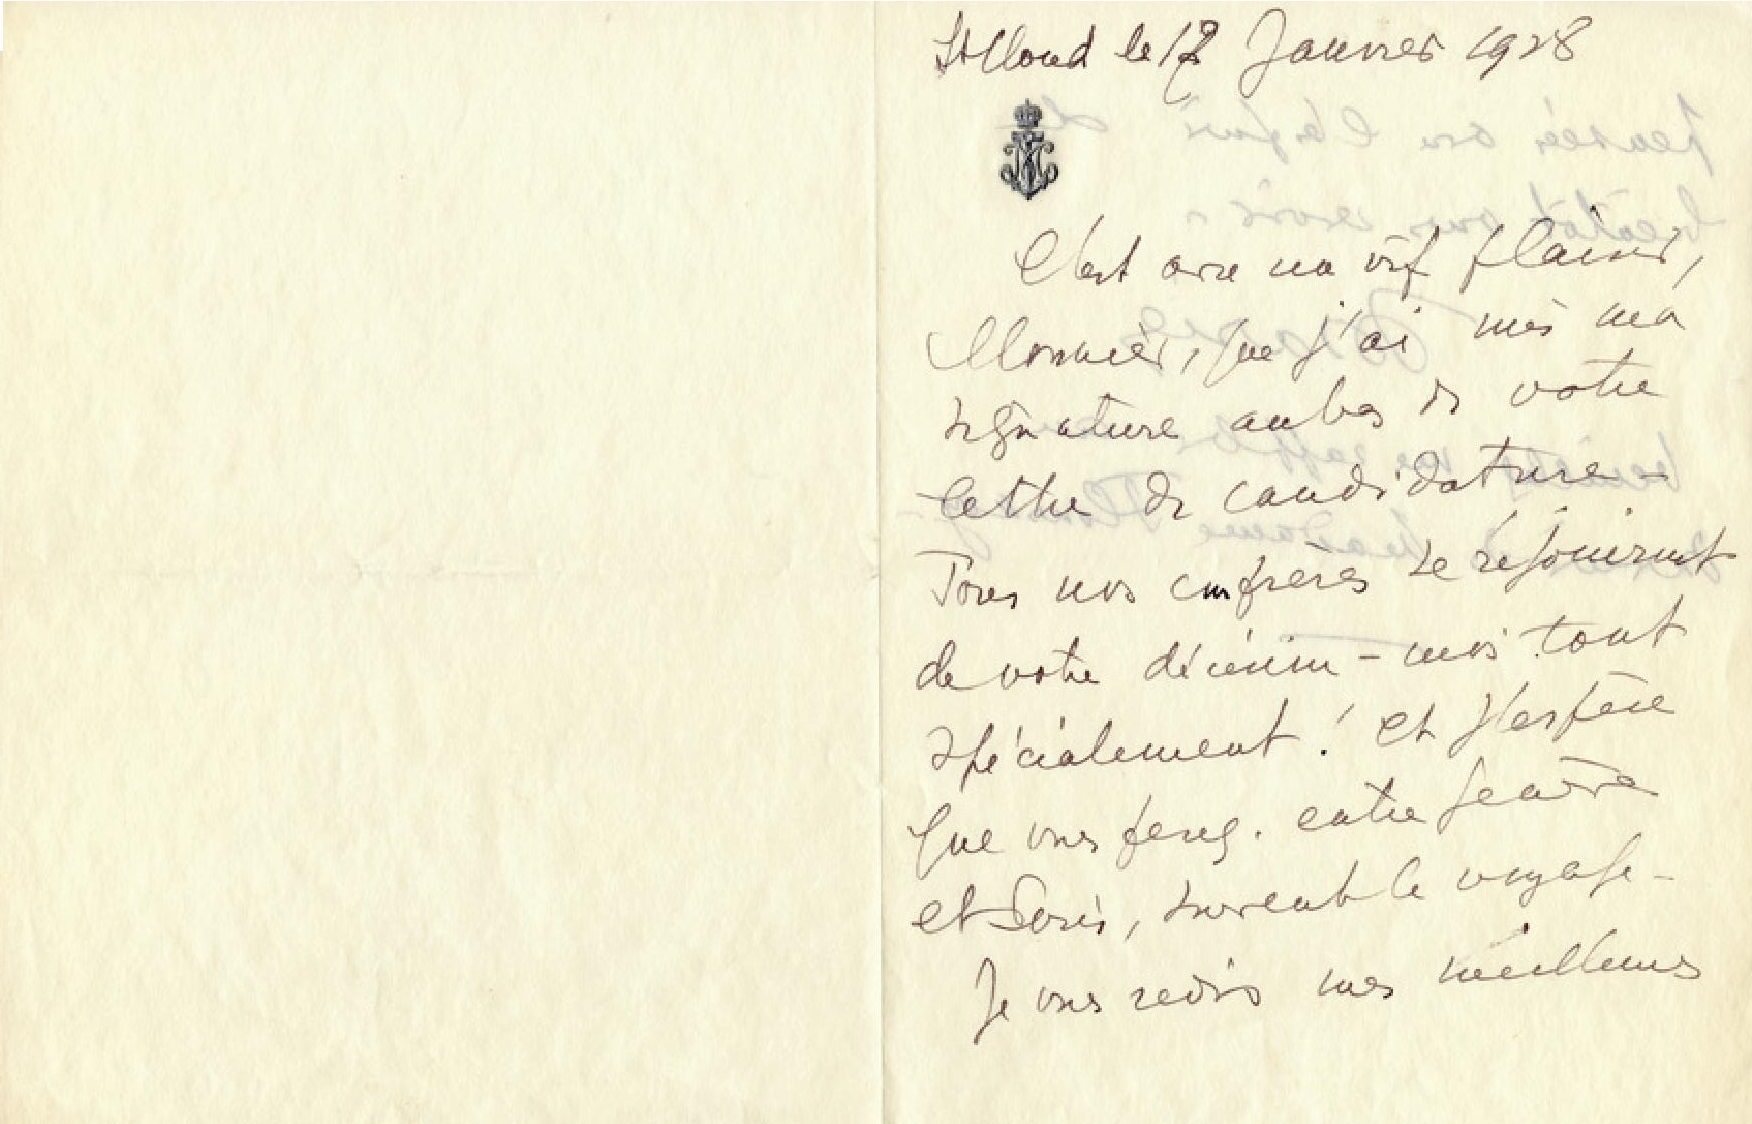 St Cloud le 17 Janvier 1928
C'est avec un vif plaisir,
Monsieur, que j'ai mis ma
signature au bas de votre
lettre de candidature –
Tous nos confrères se réjouiront
de votre décision – moi tout
spécialement ! Et j'espère
que vous ferez. entre
et Paris, souvent le voyage –
Je vous redis mes meilleurs